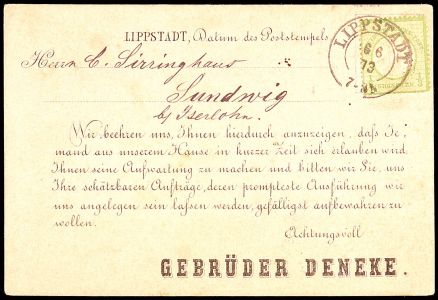 LIPPSTADT, Datum des Poststempels
LIPPSTADT
6 6
73
Herrn C. Sirringhaus
Sundwig
b/ Iserlohn.
Wir beehren uns, Ihnen hierdurch anzuzeigen, dafs Je-
mand aus unserem Hause in kurzer Zeit sich erlauben wird,
Ihnen seine Aufwartung zu machen und bitten wir Sie, uns
Ihre schätzbaren Aufträge, deren prompteste Ausführung wir
uns angelegen sein lafsen werden, gefälligst aufbewahren zu
wollen.
Achtungsvoll
GEBRÜDER DENEKE.